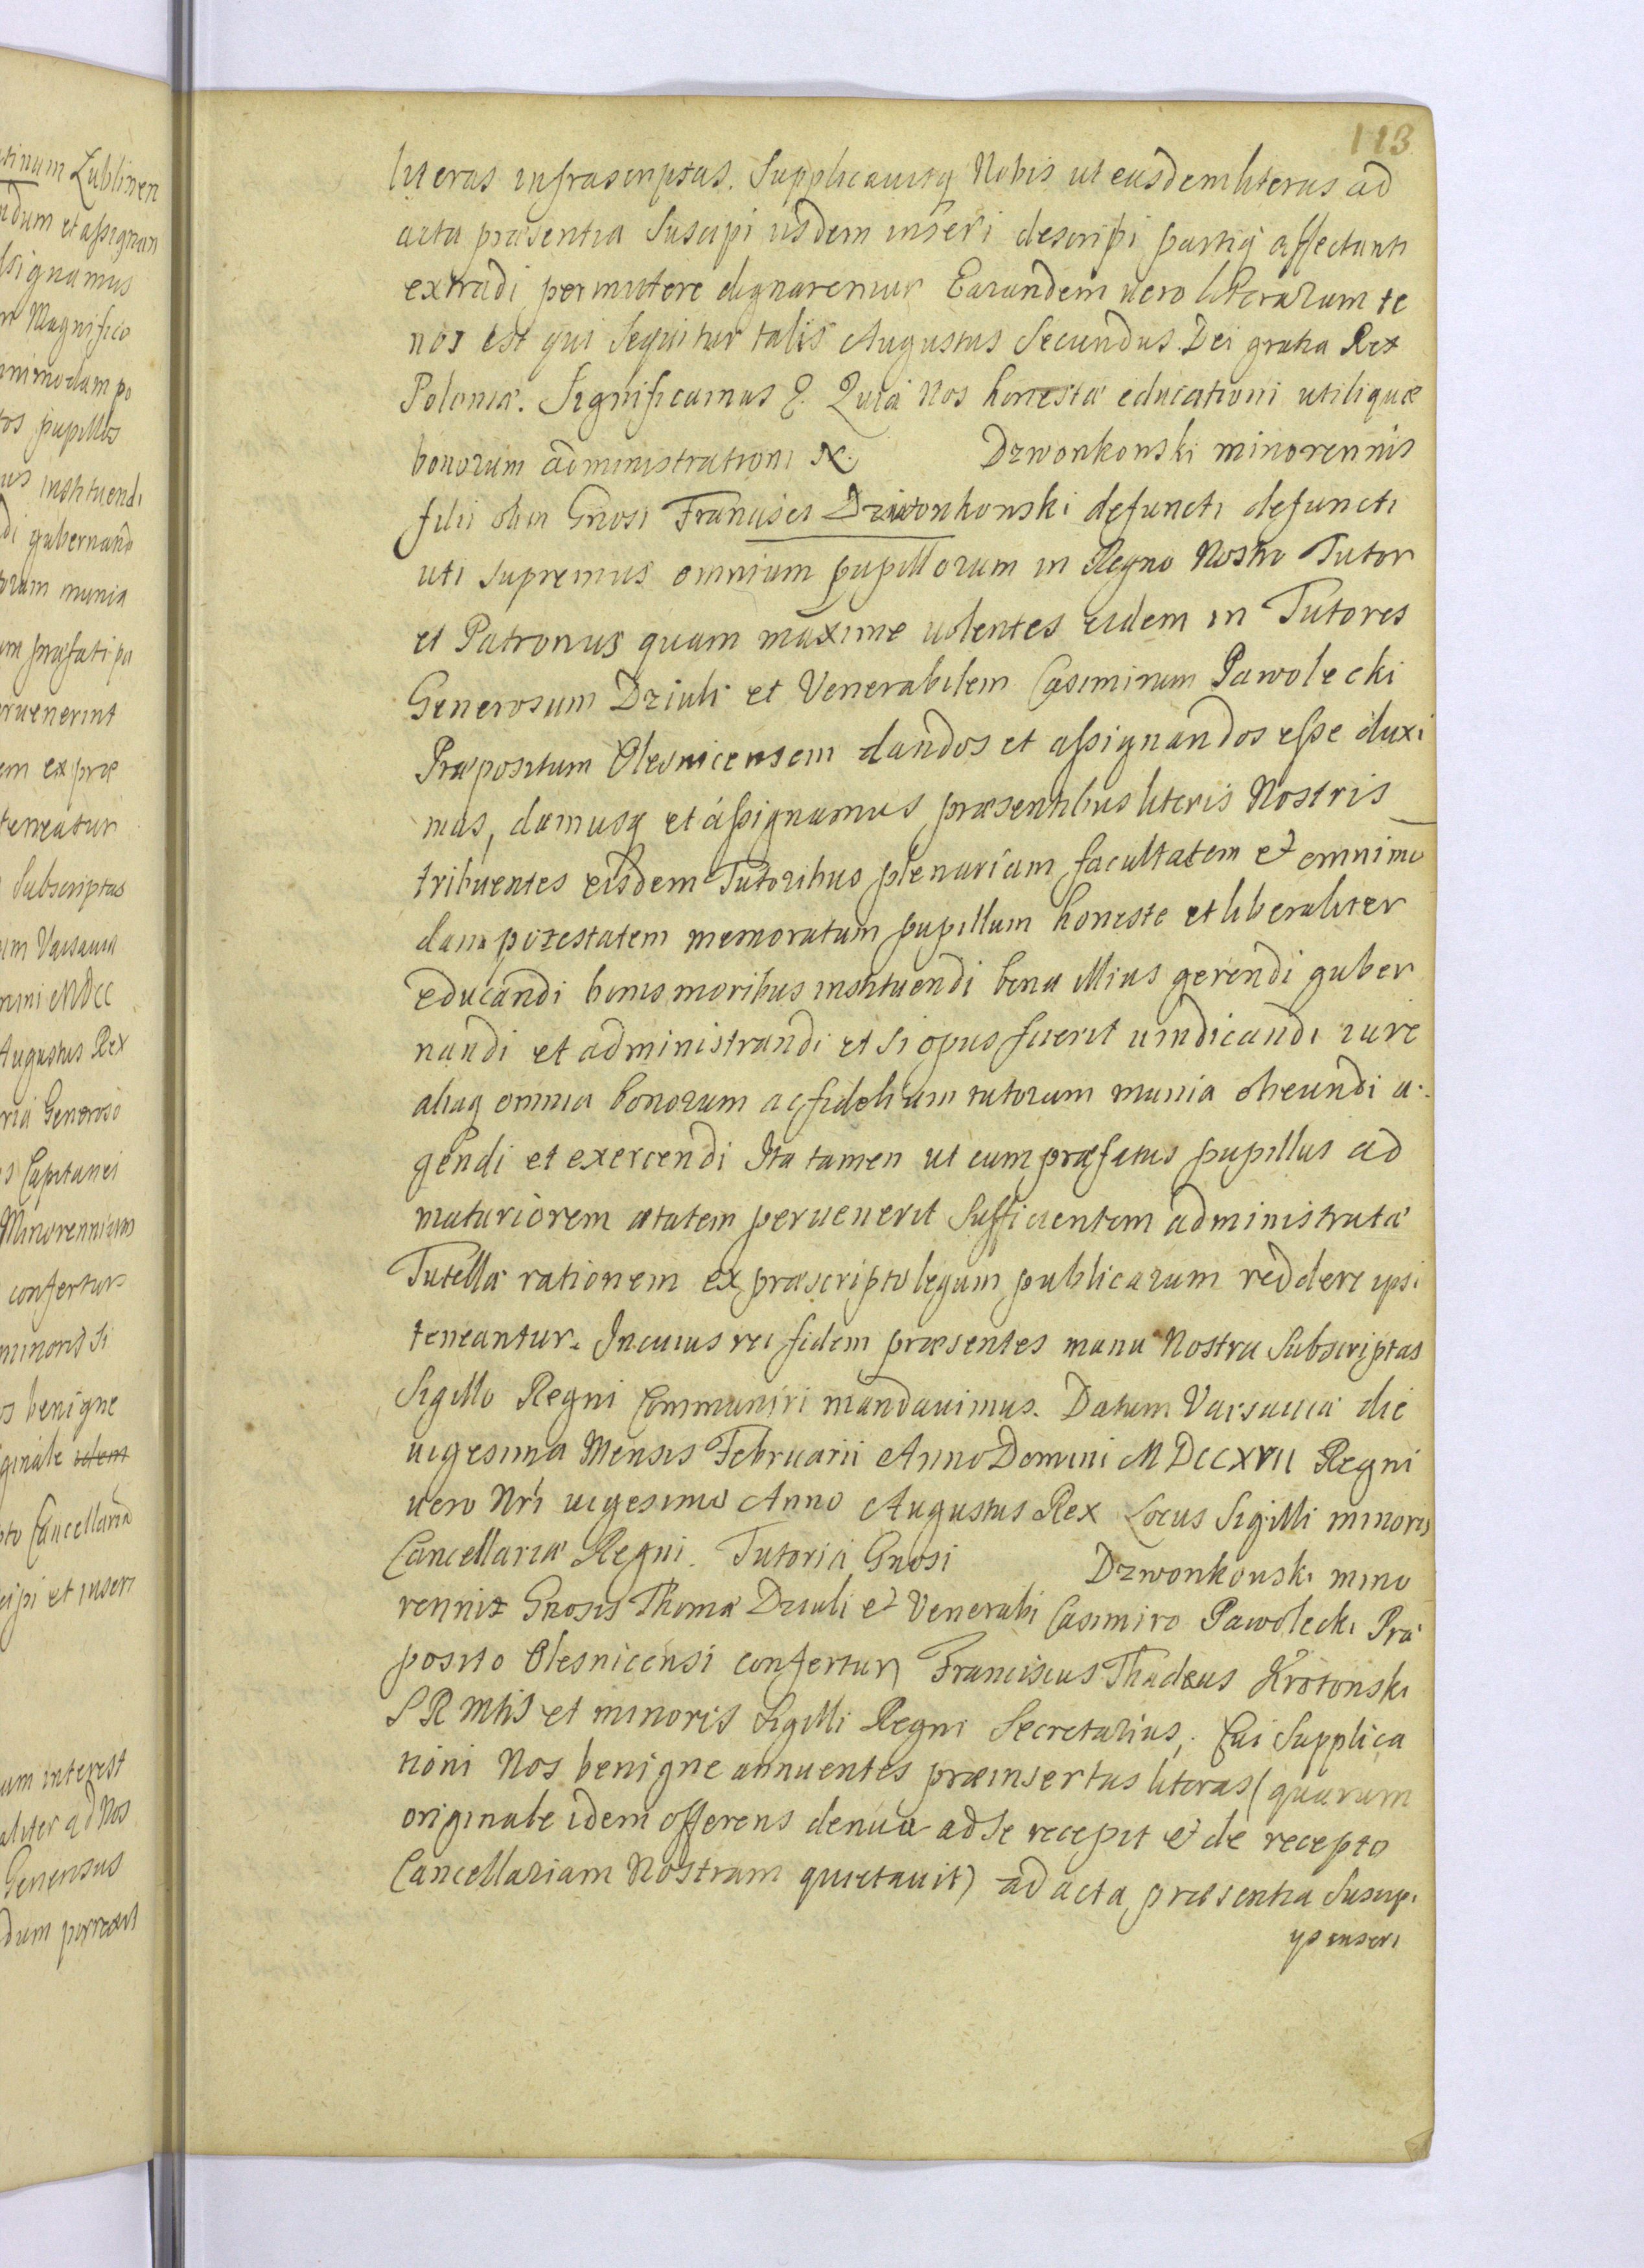 113
literas infrascriptas. Supplicavitq Nobis ut easdem literas ad
acta præsentia Suscipi iisdem inseri describi partiq affectanti
extradi permittere dignaremur Earundem vero literarum te
nor est qui sequitur talis Augustus Secundus Dei gratia Rex
Poloniæ. Significamus &. Quia Nos honestæ educationi utilique
bonorum administrationi N. Dzwonkonski minorennis
filii olim Gnosi Francisci Dziwonkonski defuncti defuncti
uti supremus omnium pupillorum in Regno Nostro Tutor
et Patronus quam maxime volentes eidem in Tutores
Generosum Dziuli et Venerabilem Casimirum Pawolecki
Præpositum Olesnicensem dandos et assignandos esse duxi
mus, damusq et assignamus præsentibus literis Nostris
tribuentes eisdem Tutoribus plenariam facultatem et omnimo
dam potestatem memoratum pupillum honeste et liberaliter
educandi bonis moribus instituendi bona illius gerendi guber
nandi et administrandi et si opus fuerit uindicandi iure
aliaq omnia bonorum ac fidelium tutorum munia obeundi a
gendi et exercendi Ita tamen ut cum præfatus pupillus ad
maturiorem ætatem peruenerit Sufficientem administratæ
Tutellæ rationem ex præscripto legum publicarum reddere ipsi
teneantur. In cuius rei fidem præsentes manu Nostra Subscriptas
Sigillo Regni Communiri mandauimus. Datum Varsauiæ die
uigesima Mensis Februarii Anno Domini MDCCXVII Regni
uero Nri uigesimo Anno Augustus Rex Locus Sigilli minoris
Cancellariæ Regni. Tutoria Gnosi Dzwonkonski mino
rennis Gnosis Thomæ Dziuli et Venerabi Casimiro Pawolecki Præ
posito Olesnicensi confertur Franciscus Thadeus Krotonski
S R Mtis et minoris Sigilli Regni Secretarius. Cui Supplica
tioni Nos benigne annuentes præinsertas literas (quarum
originale idem offerens denuo ad se recepit et de recepto
Cancellariam Nostram quietauit) ad acta præsentia Suscipi
ys inseri